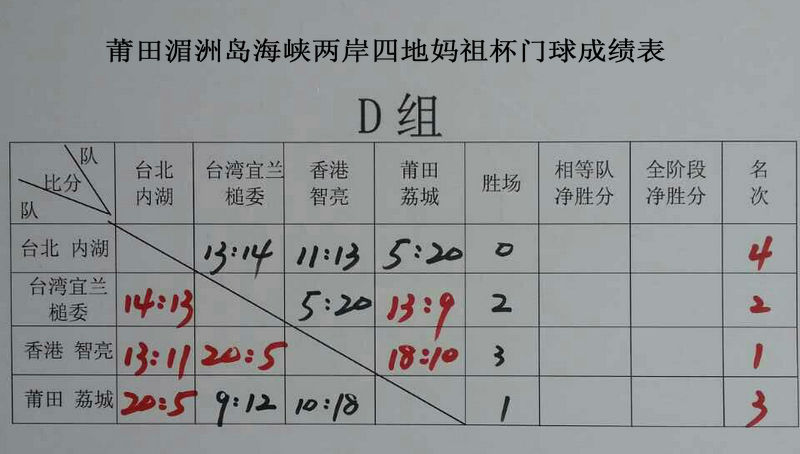 莆田湄洲岛海峡两岸四地妈祖杯门球成绩表
D组
队 比分 队 台北内湖 台湾宜兰槌委 香港智亮 莆田荔城 胜场 相等队净胜分 全阶段净胜分 名次
台北 内湖 13:14 11:13 5:20 0 4
台湾宜兰槌委 14:13 5:20 13:9 2 2
香港 智亮 13:11 20:5 18:10 3 1
莆田 荔城 20:5 9:12 10:18 1 3